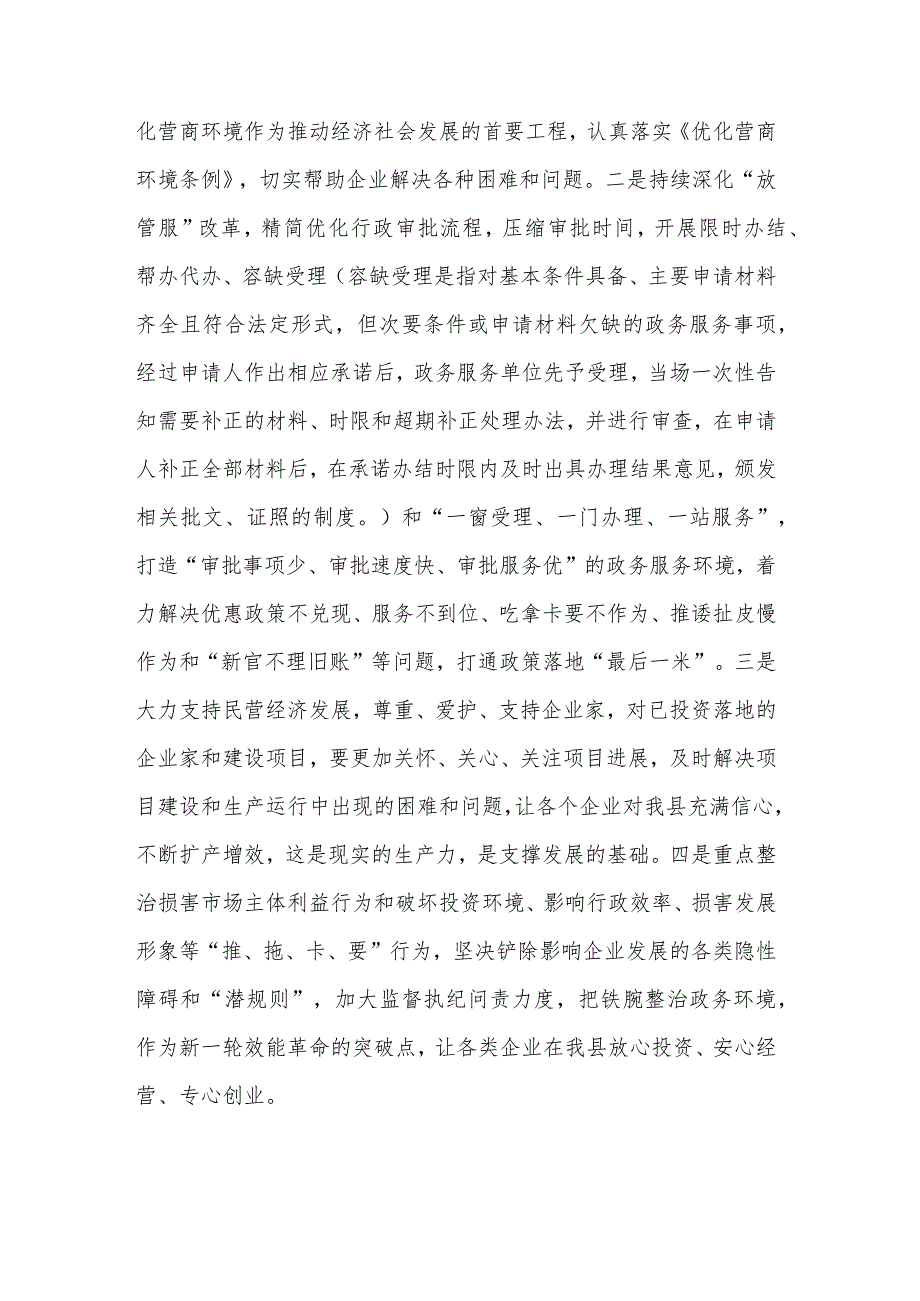 化营商环境作为推动经济社会发展的首要工程，认真落实《优化营商
环境条例》，切实帮助企业解决各种困难和问题。二是持续深化“放
管服”改革，精简优化行政审批流程，压缩审批时间，开展限时办结、
帮办代办、容缺受理（容缺受理是指对基本条件具备、主要申请材料
齐全且符合法定形式，但次要条件或申请材料欠缺的政务服务事项，
经过申请人作出相应承诺后，政务服务单位先予受理，当场一次性告
知需要补正的材料、时限和超期补正处理办法，并进行审查，在申请
人补正全部材料后，在承诺办结时限内及时出具办理结果意见，颁发
相关批文、证照的制度。）和“一窗受理、一门办理、一站服务”，
打造“审批事项少、审批速度快、审批服务优”的政务服务环境，着
力解决优惠政策不兑现、服务不到位、吃拿卡要不作为、推诿扯皮慢
作为和“新官不理旧账”等问题，打通政策落地“最后一米”。三是
大力支持民营经济发展，尊重、爱护、支持企业家，对已投资落地的
企业家和建设项目，要更加关怀、关心、关注项目进展，及时解决项
目建设和生产运行中出现的困难和问题，让各个企业对我县充满信心，
不断扩产增效，这是现实的生产力，是支撑发展的基础。四是重点整
治损害市场主体利益行为和破坏投资环境、影响行政效率、损害发展
形象等“推、拖、卡、要”行为，坚决铲除影响企业发展的各类隐性
障碍和“潜规则”，加大监督执纪问责力度，把铁腕整治政务环境，
作为新一轮效能革命的突破点，让各类企业在我县放心投资、安心经
营、专心创业。